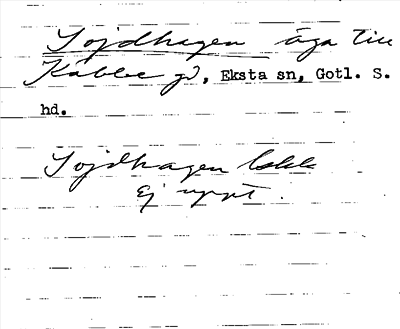 Sojdhagen äga till
Kabbe gd, Eksta sn, Gotl. S.
hd.
Sojdhagen lokk
Ej uppt.